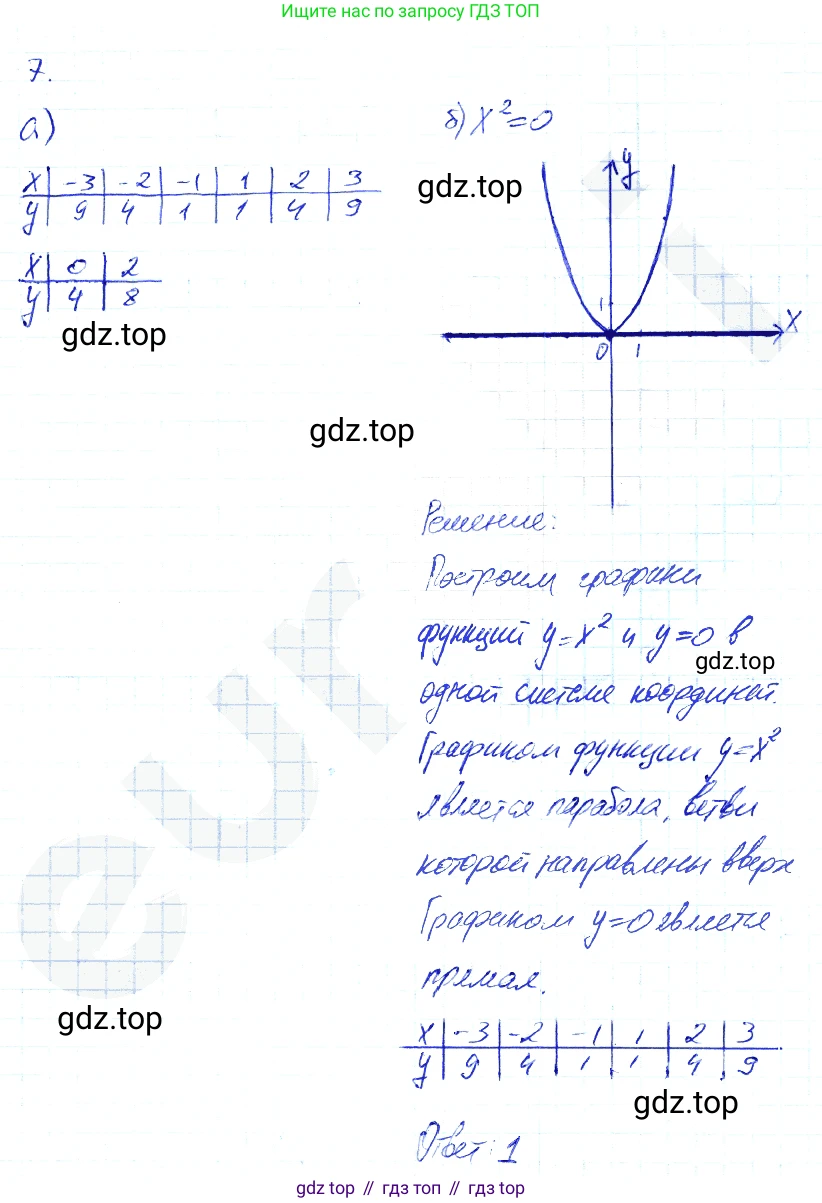 Ищите нас по запросу ГДЗ ТОП
7.
а)
x | -3 | -2 | -1 | 1 | 2 | 3
y | 9 | 4 | 1 | 1 | 4 | 9
x | 0 | 2
y | 4 | 8
gdz.top
б) x²=0
gdz.top
y
1
x
0 1
gdz.top
Решение:
Построим графики
функций y=x² и y=0 в
gdz.top
одной системе координей.
Графиком функции y=x²
является парабола, ветви
которой направлены вверх
Графиком y=0 является
прямая.
eur
gdz.top
x | -3 | -2 | -1 | 1 | 2 | 3
y | 9 | 4 | 1 | 1 | 4 | 9
gdz.top
Ответ: 1
gdz.top // гдз топ // gdz top